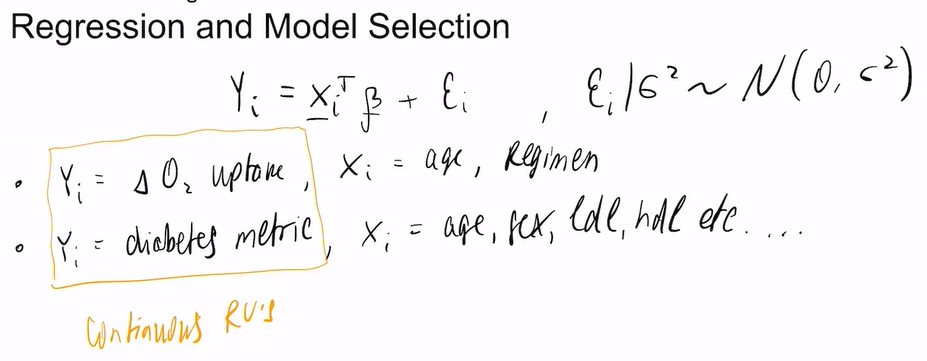 Regression and Model Selection
Yᵢ = xᵢᵀ β + εᵢ , εᵢ|σ² ~ N(0, σ²)
• Yᵢ = Δ O₂ uptake, Xᵢ = age, Regimen
• Yᵢ = diabetes metric, Xᵢ = age, sex, ldl, hdl etc....
Continuous RV's